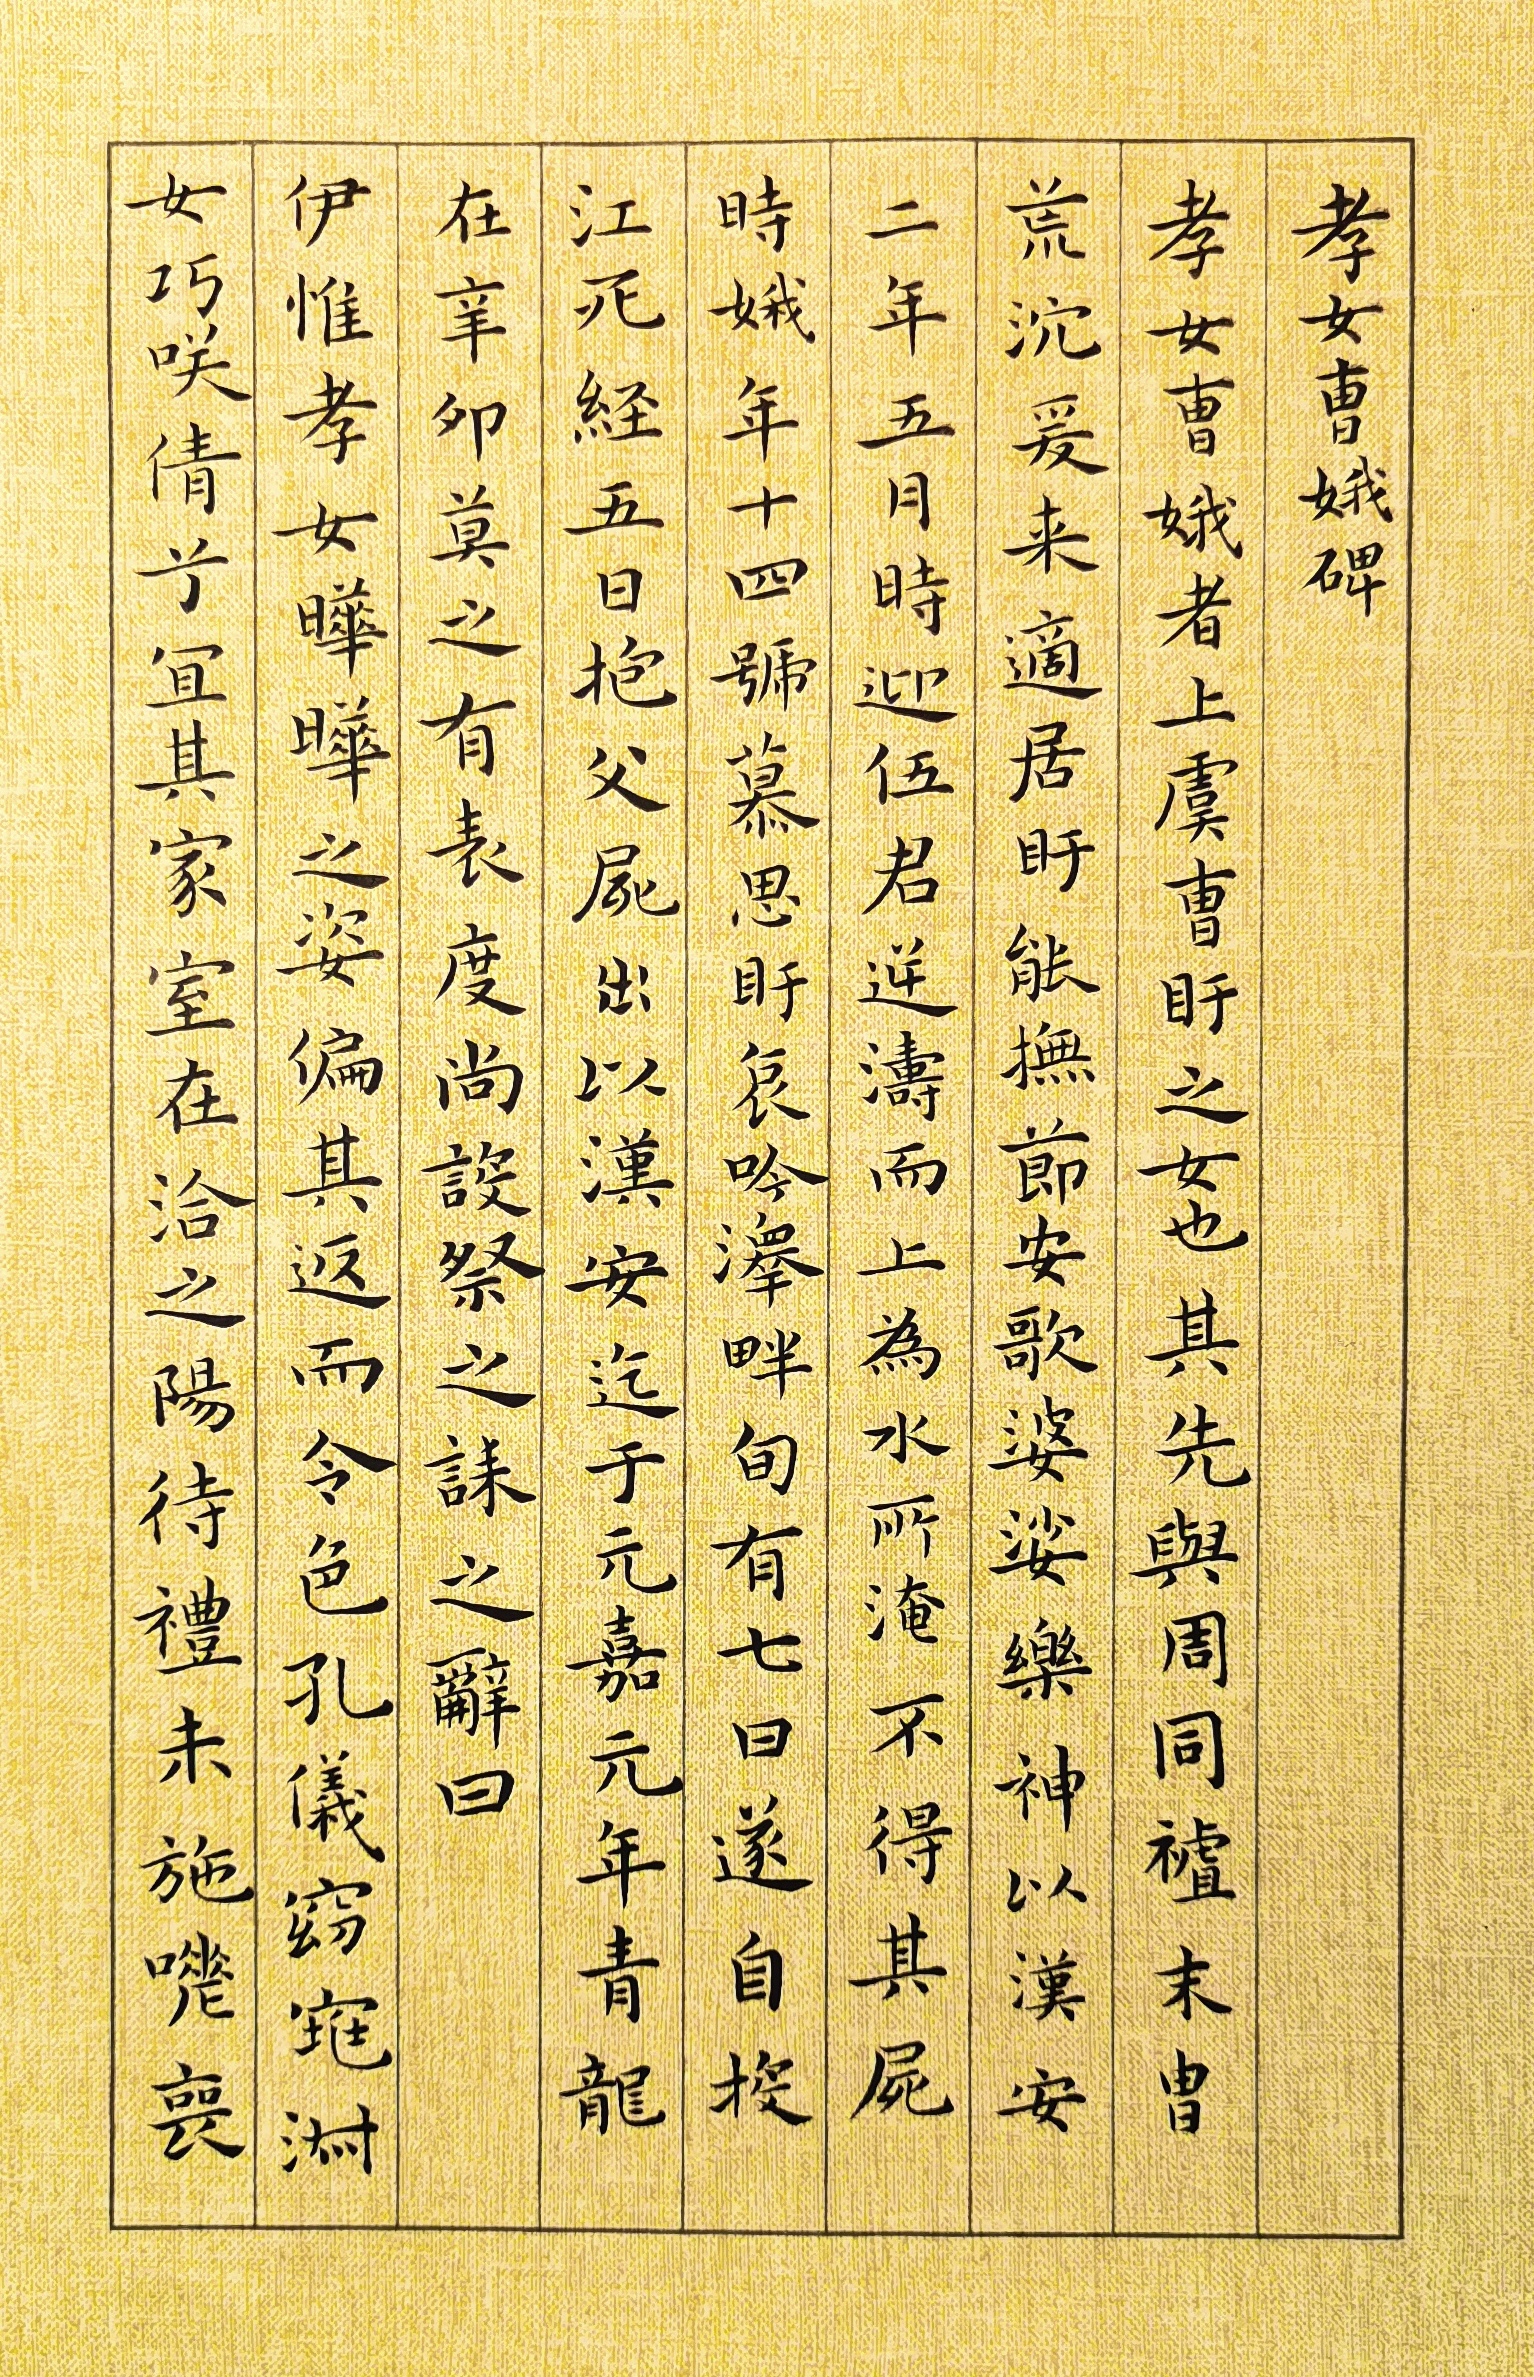 孝女曹娥碑
孝女曹娥者上虞曹盱之女也其先與周同祖末胄
荒沉爰来適居盱能撫節安歌婆娑樂神以漢安
二年五月時迎伍君逆濤而上為水所淹不得其屍
時娥年十四號慕思盱哀吟澤畔旬有七日遂自投
江死経五日抱父屍出以漢安迄于元嘉元年青龍
在辛卯莫之有表度尚設祭之誄之辭曰
伊惟孝女曄曄之姿偏其返而令色孔儀窈窕淑
女巧咲倩兮宜其家室在洽之陽待禮未施嗟喪